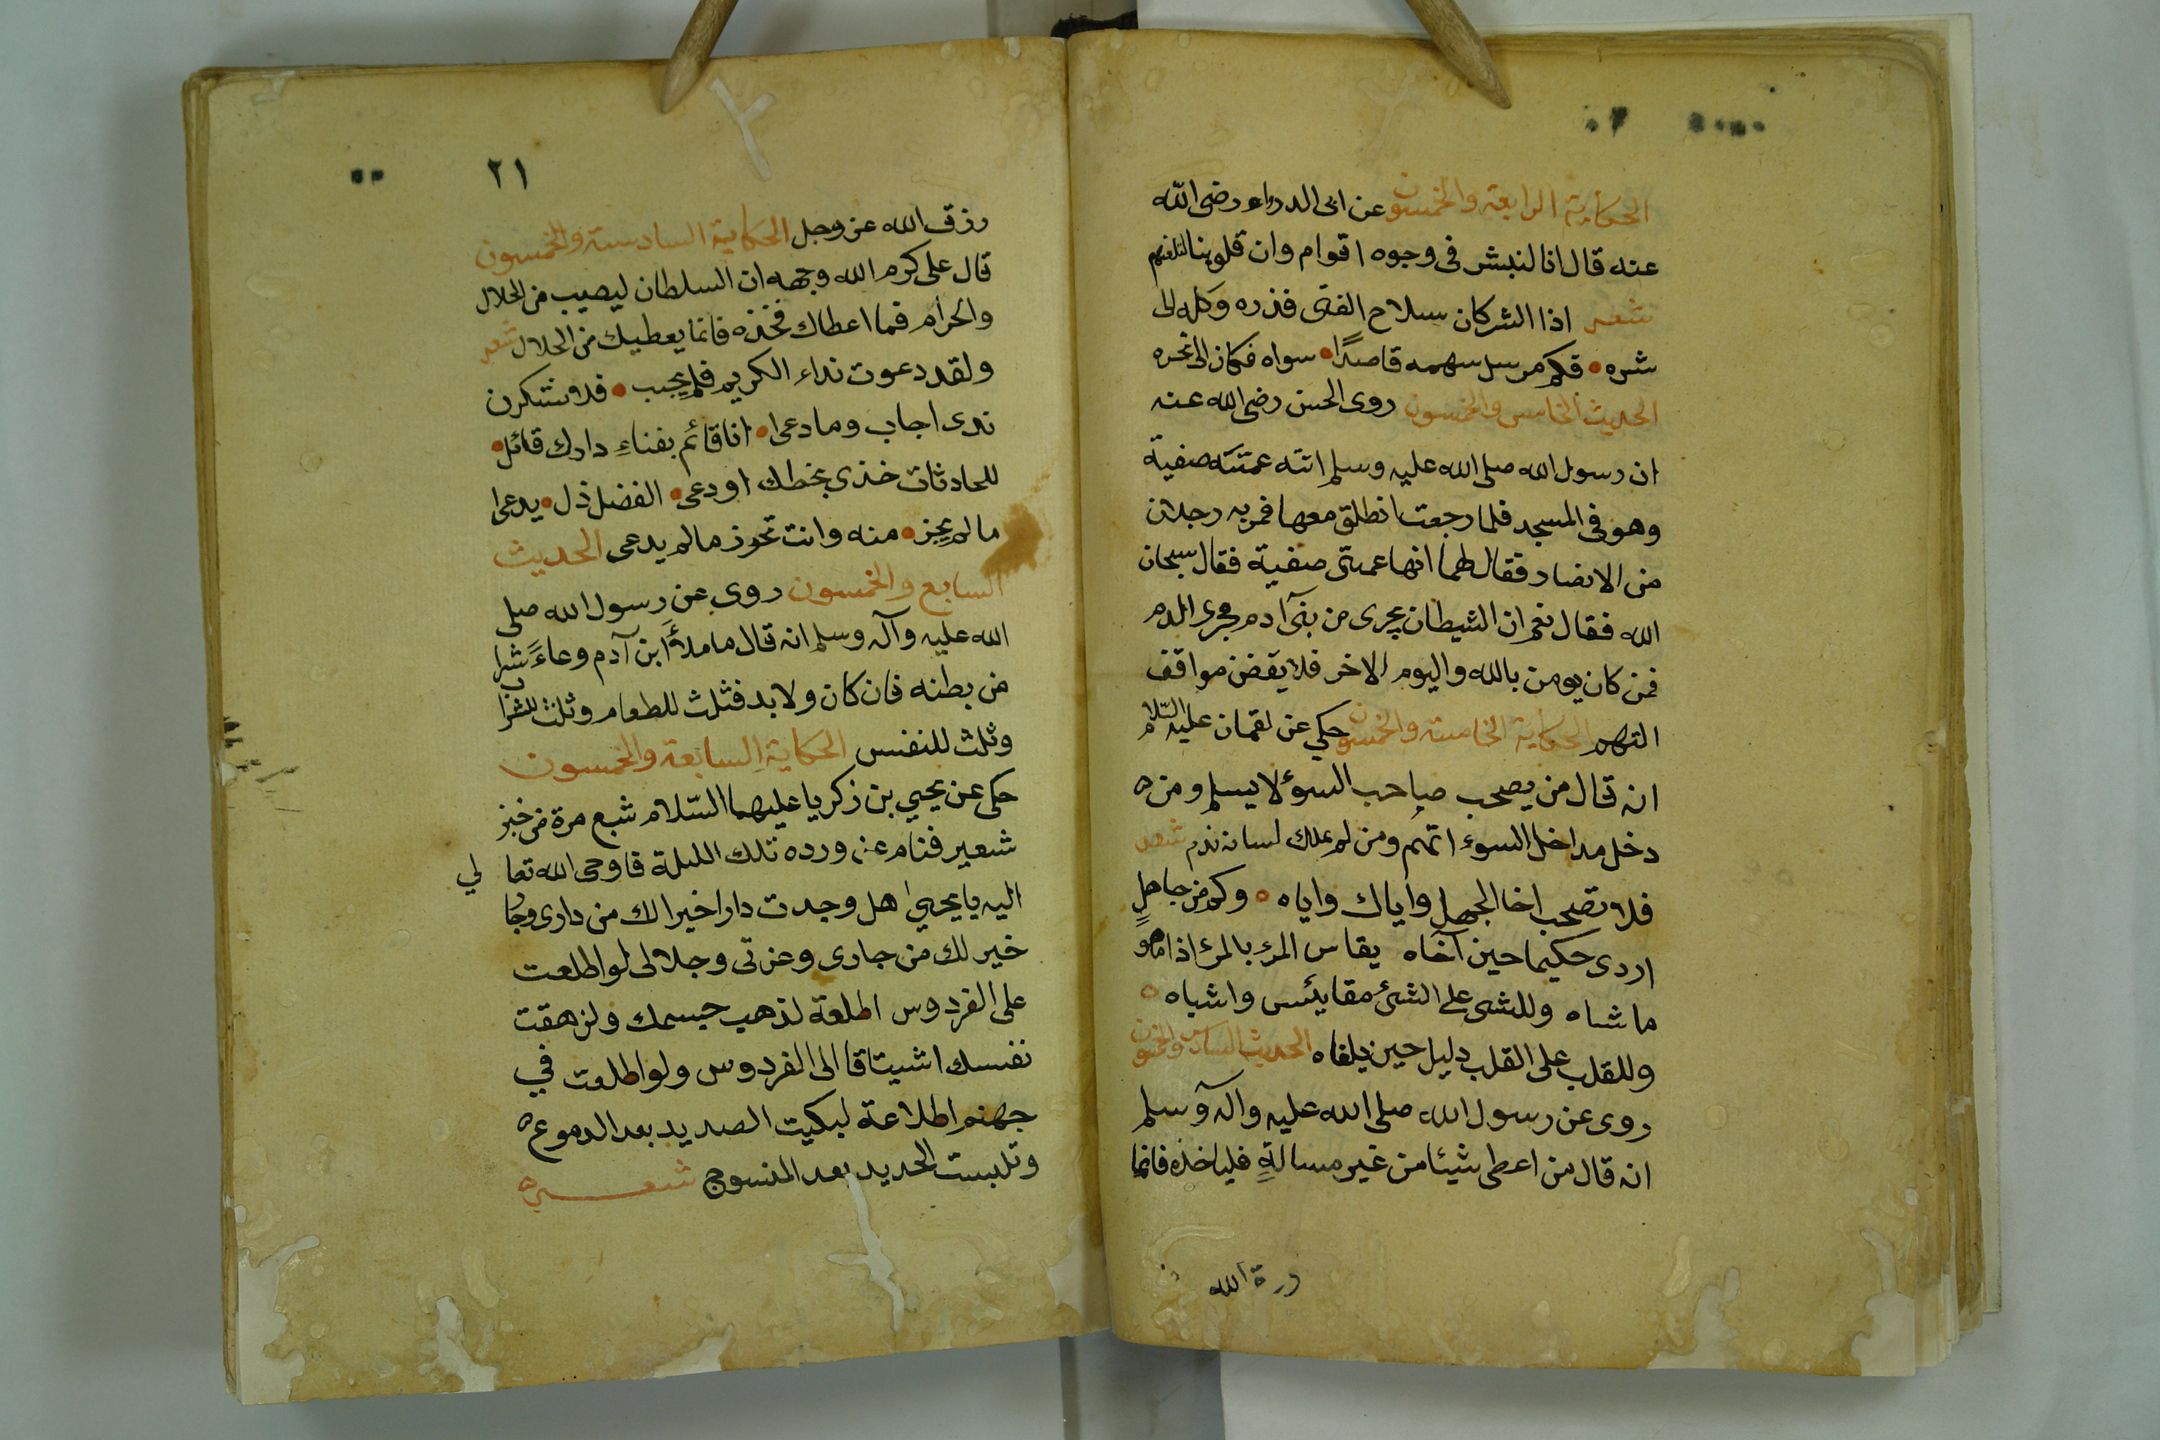 الحكاية الرابعة والخمسون عن ابى الدرداء رضى الله
عنه قال انا لنبش فى وجوه اقوام وان قلوبنا لتلعنهم
شعر اذا الشر كان سلاح الفتى فذره وكله الى
شره • فكم مرسل سهمه قاصدًا • سواه فكان الى نحره
الحديث الخامس والخمسون روى الحسن رضى الله عنه
ان رسول الله صلى الله عليه وسلم اتته عمته صفية
وهو فى المسجد فلما رجعت انطلق معها فمر به رجلان
من الانصار فقال لهما انها عمتى صفية فقال سبحان
الله فقال نعم ان الشيطان يجرى من بنى آدم مجرى الدم
فمن كان يومن بالله واليوم الاخر فلا يقفن مواقف
التهم الحكاية الخامسة والخمسون حكي عن لقمان عليه السلام
انه قال من يصحب صاحب السوء لا يسلم ومن ه
دخل مداخل السوء اتهم ومن لم يملك لسانه ندم شعر
فلا تصحب اخا الجهل واياك واياه ه وكم من جاهلٍ
اردى حكيما حين آخاه يقاس المرء بالمرء اذا ما هو
ما شاه وللشى على الشئ مقاييس واشباه ه
وللقلب على القلب دليل حين يلقاه الحديث السادس والخمسون
روى عن رسول الله صلى الله عليه وآله وسلم
انه قال من اعطى شيئا من غير مسالةٍ فلياخذه فانما
رزق الله
٢١
رزق الله عز وجل الحكاية السادسة والخمسون
قال على كرم الله وجهه ان السلطان ليصيب من الحلال
والحرام فما اعطاك فخذه فانما يعطيك من الحلال شعر
ولقد دعوت نداء الكريم فلم يجب • فلا شكرن
ندى اجاب وما دعى • انا قائم بفناء دارك قائل •
للحادثات خذى بخطك او دعى • الفضل ذل • يدعى
ما لم يجز • منه وانت تحوز ما لم يدعى الحديث
السابع والخمسون روى عن رسول الله صلى
الله عليه وآله وسلم انه قال ما ملأ ابن آدم وعاءً شرا
من بطنه فان كان ولا بد فثلث للطعام وثلث للشراب
وثلث للنفس الحكاية السابعة والخمسون
حكى عن يحيي بن زكريا عليهما السلام شبع مرة من خبز
شعير فنام عن ورده تلك الليلة فاوحى الله تعالي
اليه يا يحيي هل وجدت دارا خيرا لك من دارى وجار
خير لك من جارى وعزتى وجلالى لو اطلعت
على الفردوس اطلعة لذهب جسمك ولزهقت
نفسك اشيتاقا الى الفردوس ولو اطلعت في
جهنم اطلاعة لبكيت الصديد بعد الدموع ه
وتلبست الحديد بعد المنسوج شعر ه